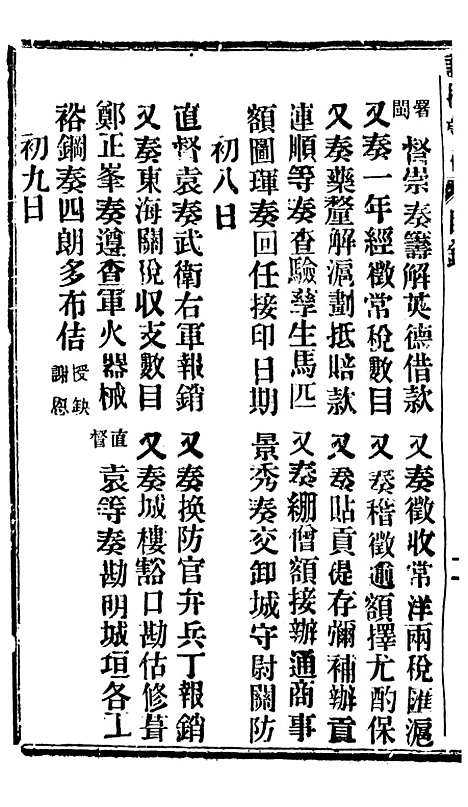 署閩督崇奏籌解英德借款　又奏徵收常洋兩稅匯滬
又奏一年經徵常稅數目　又奏稽徵逾額擇尤酌保
又奏藥釐解滬劃抵賠款　又奏貼貢提存彌補辦貢
連順等奏查驗孳生馬匹　又奏綳僧額接辦通商事
額圖琿奏回任接印日期　景秀奏交卸城守尉關防
初八日
直督袁奏武衛右軍報銷　又奏換防官弁兵丁報銷
又奏東海關稅收支數目　又奏城樓豁口勘估修葺
鄭正峯奏遵查軍火器械　直督袁等奏勘明城垣各工
裕鋼奏四朗多布佶授缺謝恩
初九日